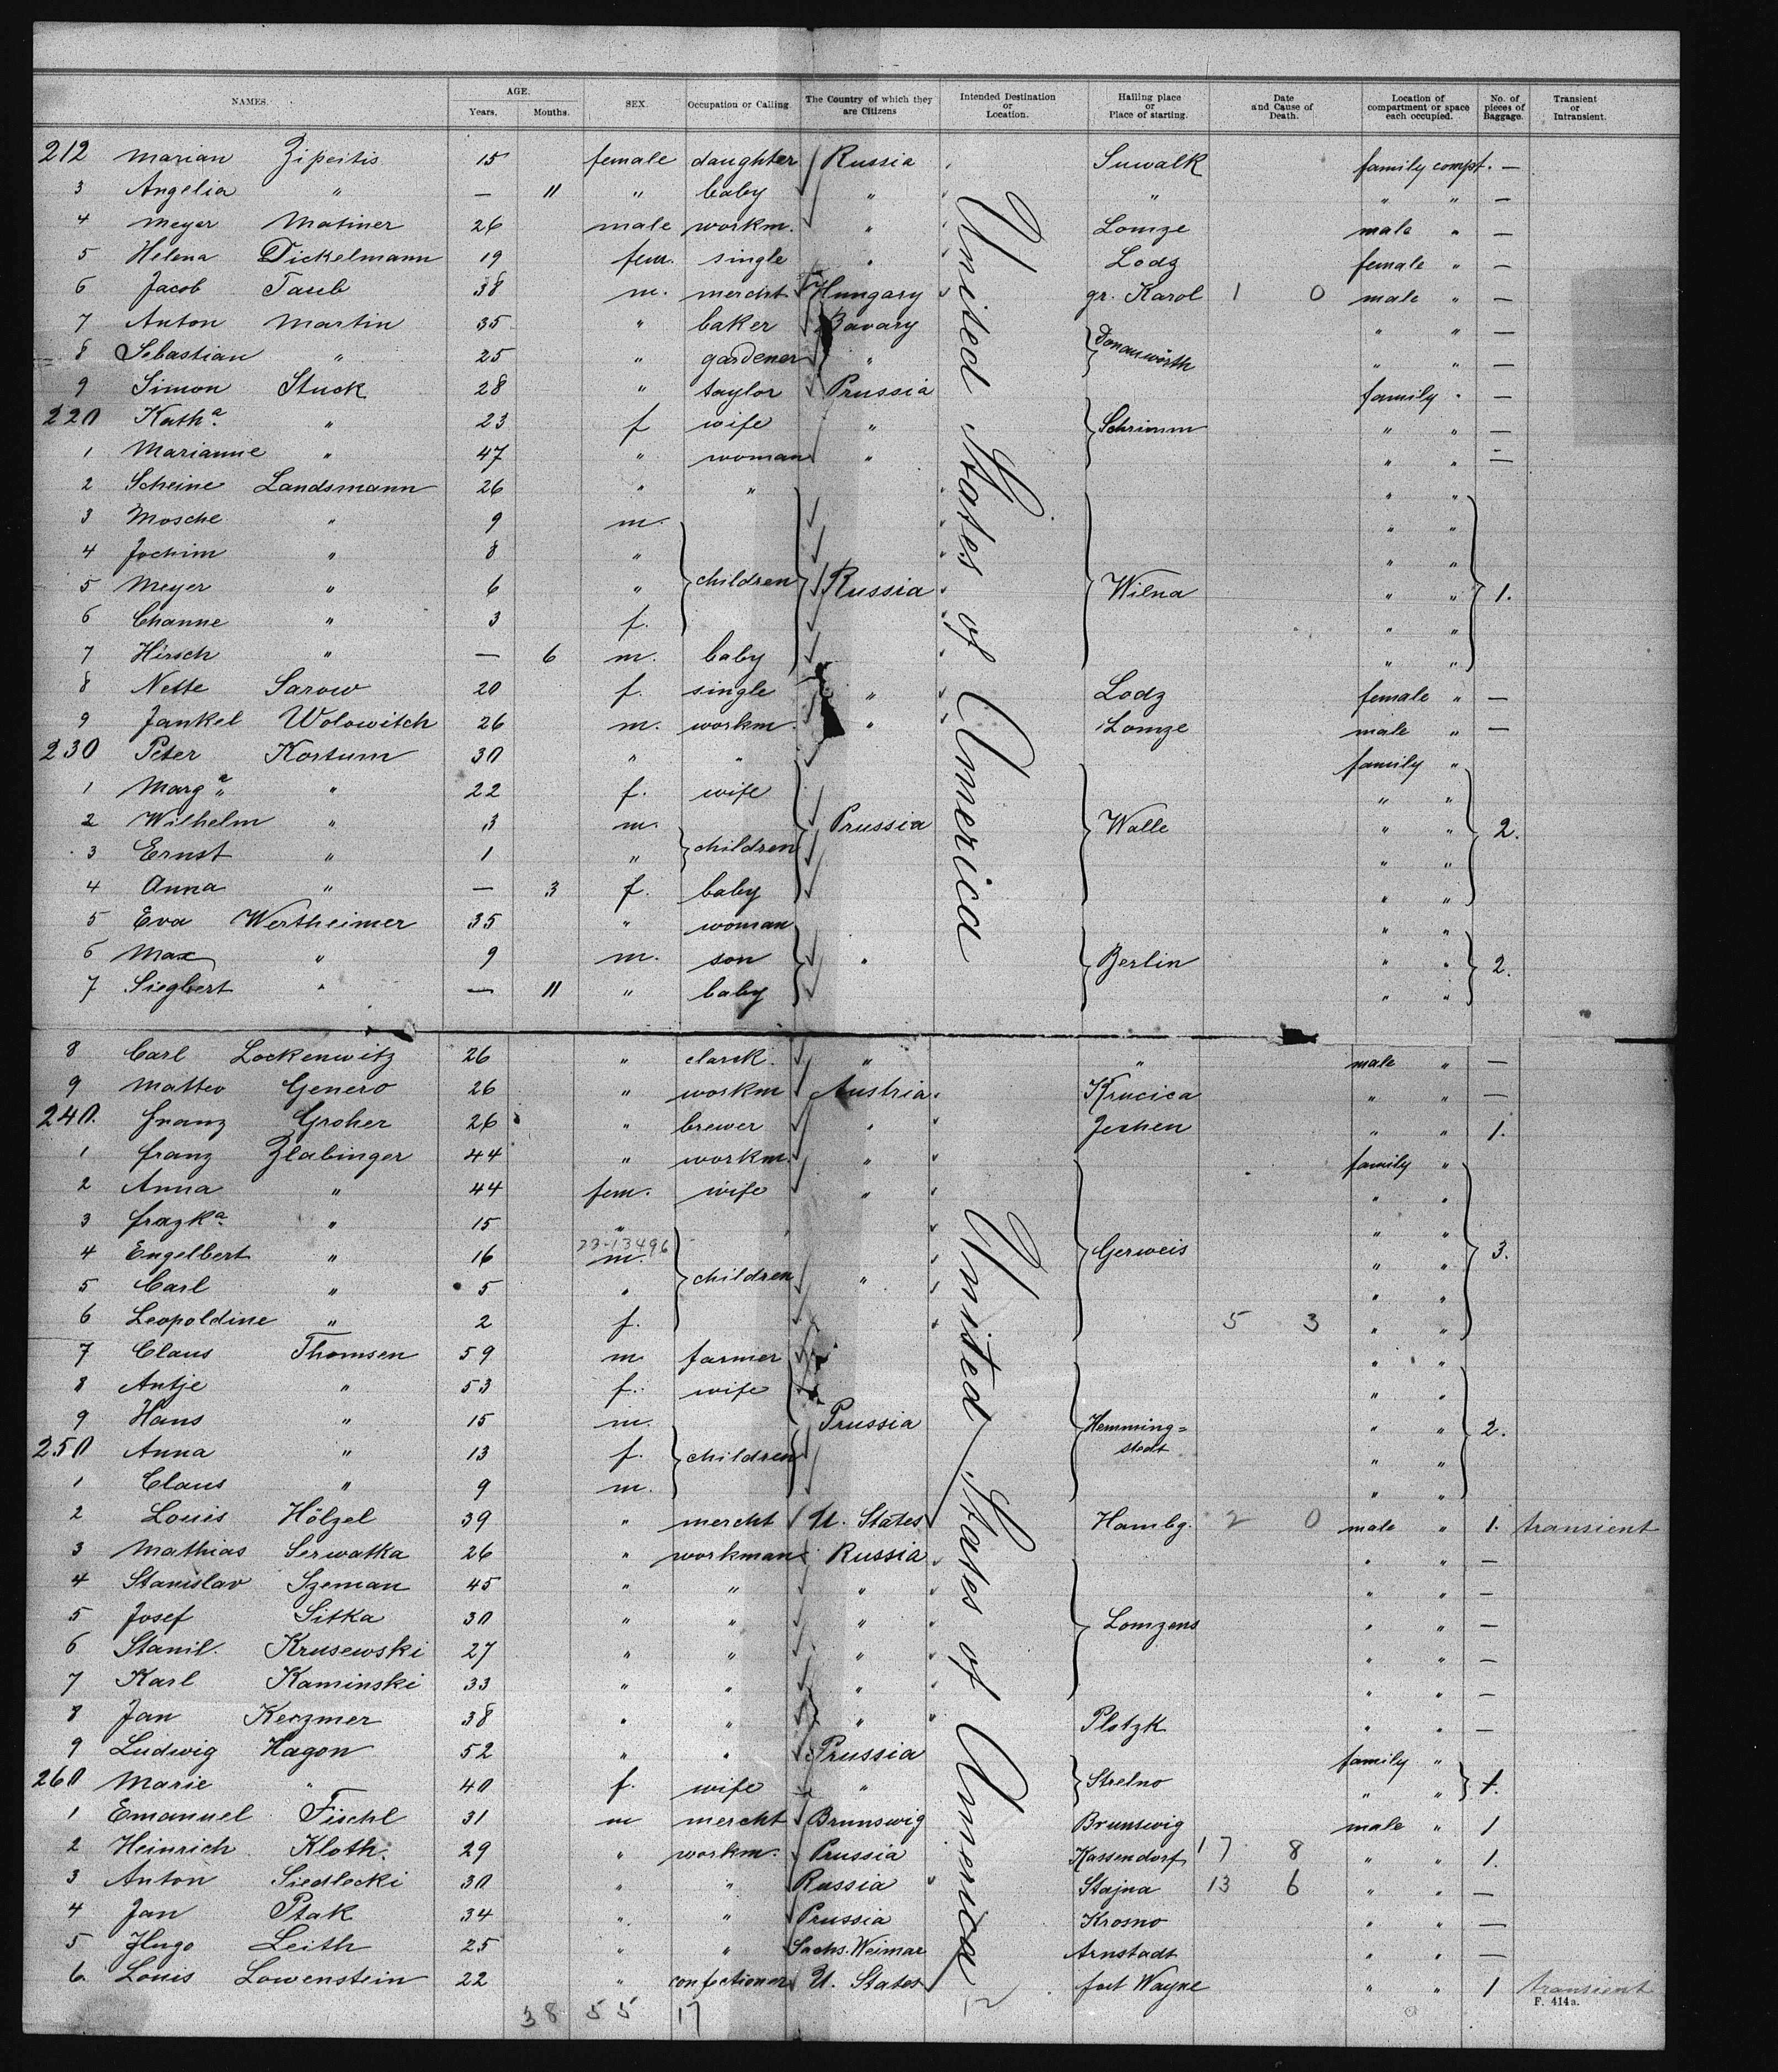 NAMES. AGE. Years. Months. SEX. Occupation or Calling. The Country of which they are Citizens Intended Destination or Location. Hailing place or Place of starting. Date and Cause of Death. Location of compartment or space each occupied. No. of pieces of Baggage. Transient or Intransient.
United States of America
212 Marian Zipeitis 15 female daughter Russia Suwalk family compt. —
3 Angelia " — 11 " baby " " " " —
4 Meyer Matiner 26 male workm. " Lomze male " —
5 Helena Dickelmann 19 fem. single " Lodz female " —
6 Jacob Taub 38 m. mercht Hungary gr. Karol 1 0 male " —
7 Anton Martin 35 " baker Bavary Donauwörth " " —
8 Sebastian " 25 " gardener " " " —
9 Simon Stuck 28 " taylor Prussia family " —
220 Kath.a " 23 f wife " Schrimm " " —
1 Marianne " 47 " woman " " " —
2 Scheine Landsmann 26 " " " "
3 Mosche " 9 m. " "
4 Jochim " 8 " " "
5 Meyer " 6 " children Russia Wilna " " 1.
6 Channe " 3 f. " "
7 Hirsch " — 6 m. baby " "
8 Nette Sarow 20 f. single " Lodz female " —
9 Jankel Wolowitch 26 m. workm. " Lomze male " —
230 Peter Kortum 30 " " family "
1 Marg.a " 22 f. wife " "
2 Wilhelm " 3 m. Prussia Walle " " 2.
3 Ernst " 1 " children " "
4 Anna " — 3 f. baby " "
5 Eva Wertheimer 35 " woman " "
6 Max " 9 m. son " Berlin " " 2.
7 Siegbert " — 11 " baby " "
8 Carl Lockenwitz 26 " clarck. " " male " —
9 Matteo Genero 26 " workm Austria. Krucica " " —
240. Franz Groher 26 " brewer " Jechen " " 1.
1 Franz Zlabinger 44 " workm. " family "
2 Anna " 44 fem. wife " " "
3 Frazk.a " 15 " " "
23-13496
4 Engelbert " 16 m. Gerweis " " 3.
5 Carl " 5 " children " " "
6 Leopoldine " 2 f. 5 3 " "
7 Claus Thomsen 59 m farmer " "
8 Antje " 53 f. wife " "
9 Hans " 15 m. Prussia Hemming= " " 2.
250 Anna " 13 f. children stedt " "
1 Claus " 9 m. " "
2 Louis Hölzel 39 " mercht U. States Hambg. 2 0 male " 1. transient
3 Mathias Serwatka 26 " workman Russia " " —
4 Stanislav Szeman 45 " " " " " —
5 Josef Sitka 30 " " " Lomzens " " —
6 Stanil. Krusewski 27 " " " " " —
7 Karl Kaminski 33 " " " " " —
8 Jan Kerzmer 38 " " " Plotzk " " —
9 Ludwig Hagon 52 " " Prussia family "
260 Marie " 40 f. wife " Strelno " " 1.
1 Emanuel Fischl 31 m mercht Brunswig Brunswig male " 1
2 Heinrich Kloth. 29 " workm. Prussia Kassendorf 17 8 " " 1.
3 Anton Siedlecki 30 " " Russia Stajna 13 6 " " —
4 Jan Ptak 34 " " Prussia Krosno " " —
5 Hugo Leith 25 " " Sachs. Weimar Arnstadt " " —
6. Louis Lowenstein 22 " confectioner U. States fort Wayne " " 1 transient
United States of America
F. 414a.
38 55 17